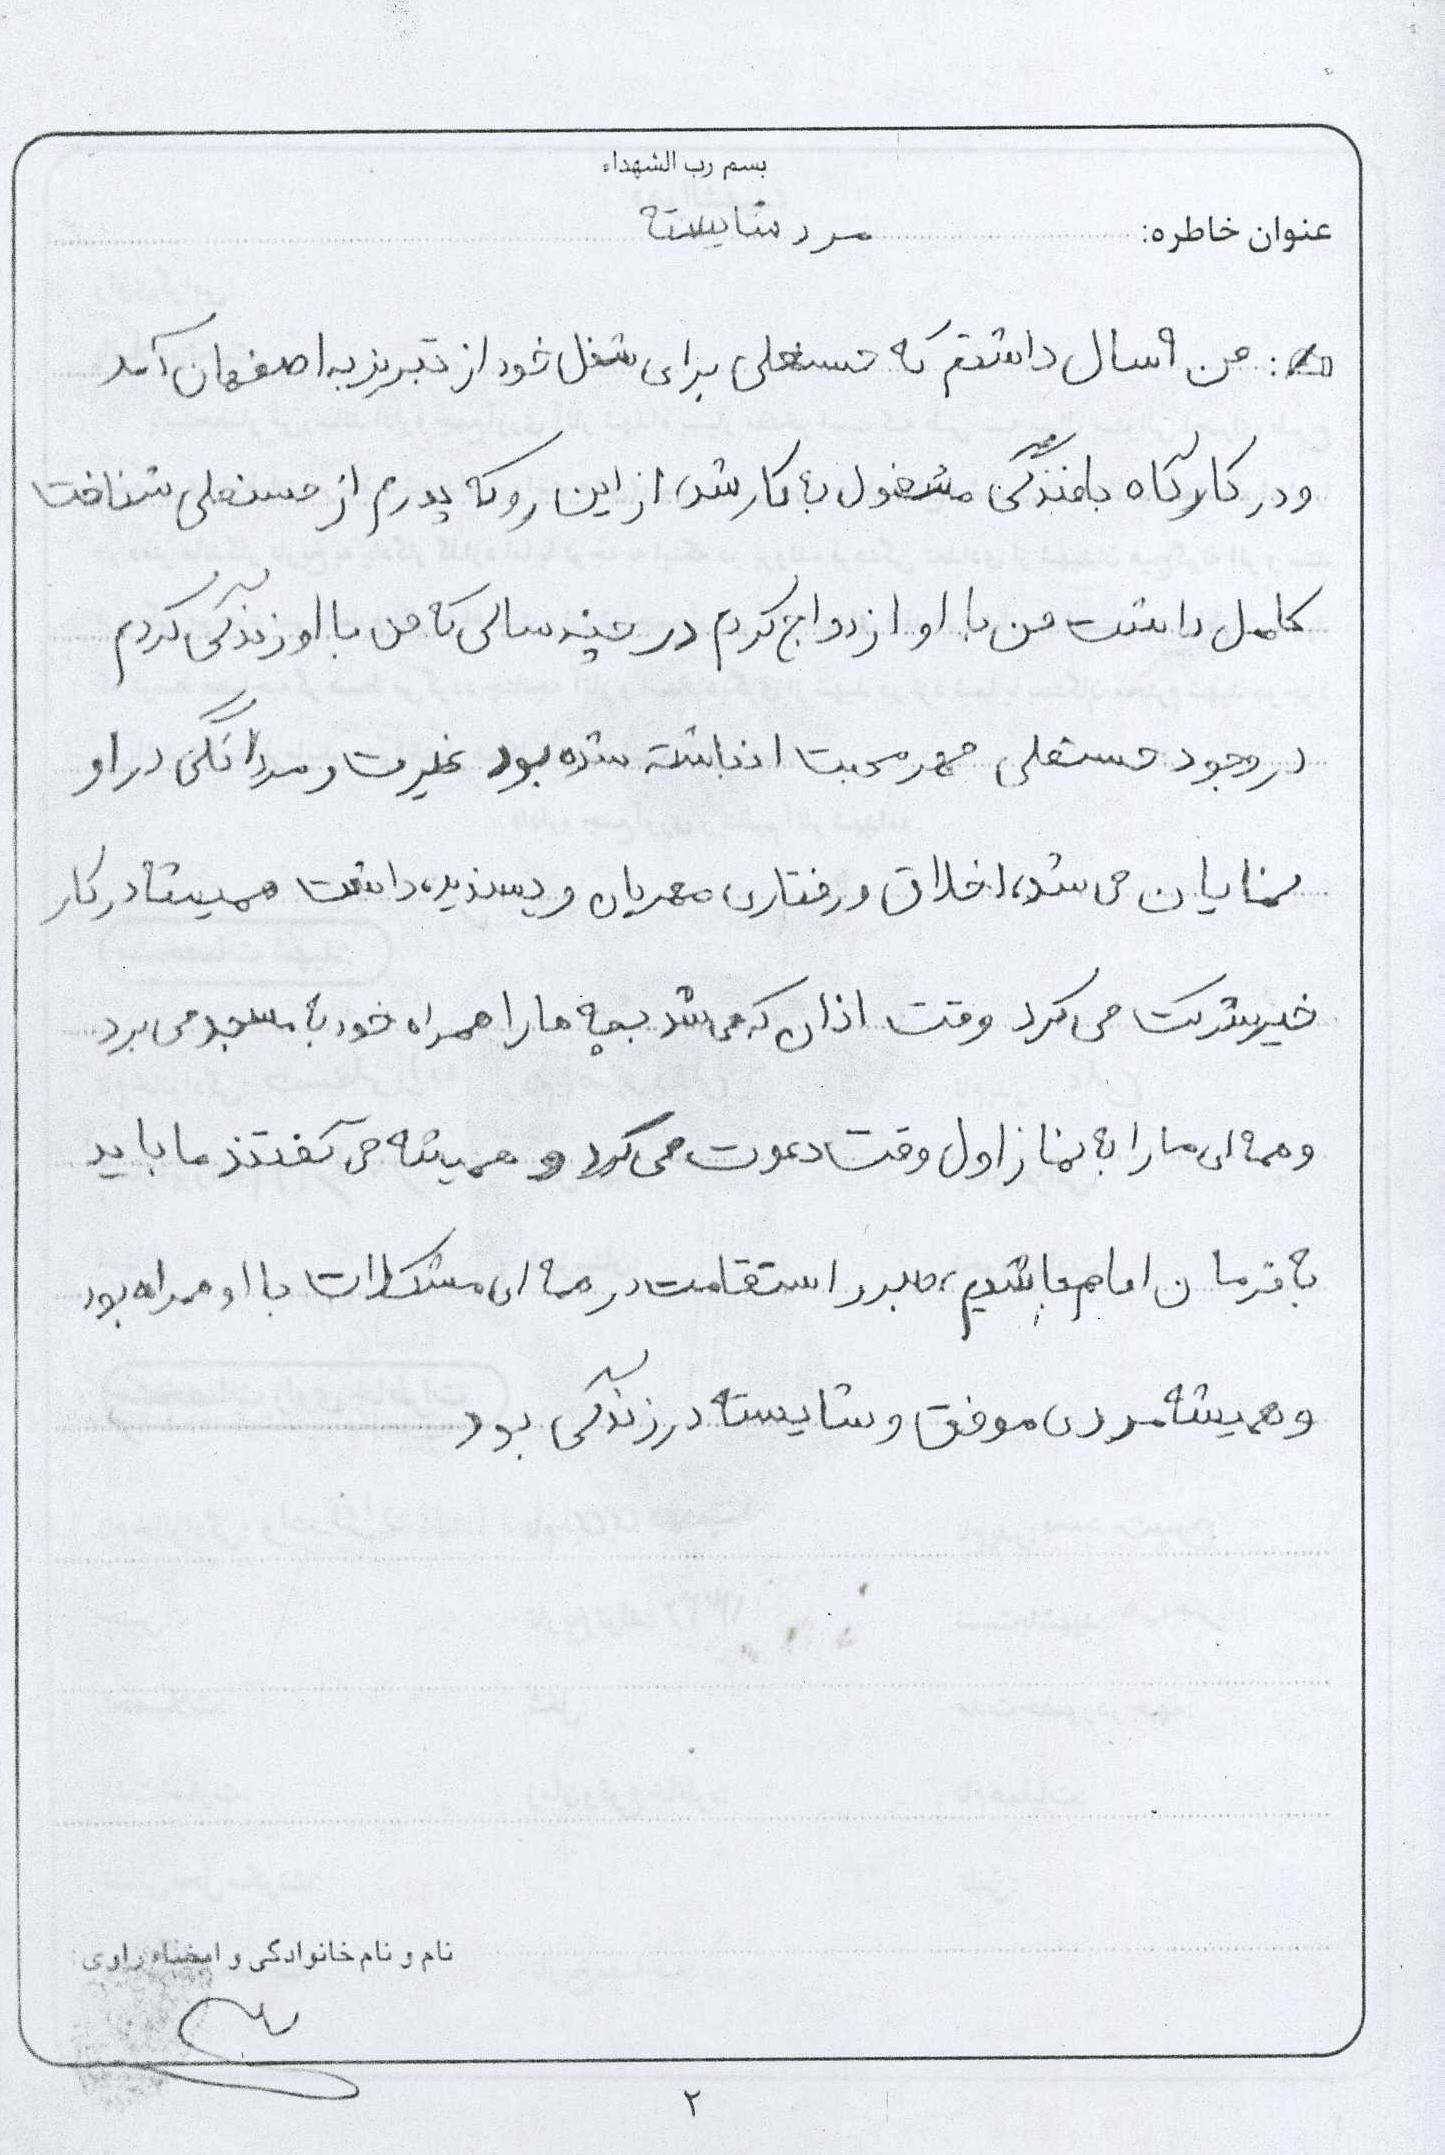 بسم رب الشهداء
عنوان خاطره: مرد شایسته
من ۹ سال داشتم که حسنعلی برای شغل خود از تبریز به اصفهان آمد
و در کارگاه بافندگی مشغول به کار شد، از این رو که پدرم از حسنعلی شناخت
کامل داشت من با او ازدواج کردم در چند سالی که من با او زندگی کردم
در وجود حسنعلی مهر محبت انباشته شده بود غیرت و مردانگی در او
نمایان می شد، اخلاق و رفتاری مهربان و پسندیده داشت همیشه در کار
خیر شرکت می کرد وقت اذان که می شد بچه ها را همراه خود به مسجد می برد
و همه ای ما را به نماز اول وقت دعوت می کرد و همیشه می گفتند ما باید
به فرمان امام باشیم، صبر و استقامت در همه ای مشکلات با او همراه بود
و همیشه مردی موفق و شایسته در زندگی بود
نام و نام خانوادگی و امضاء راوی:
۲